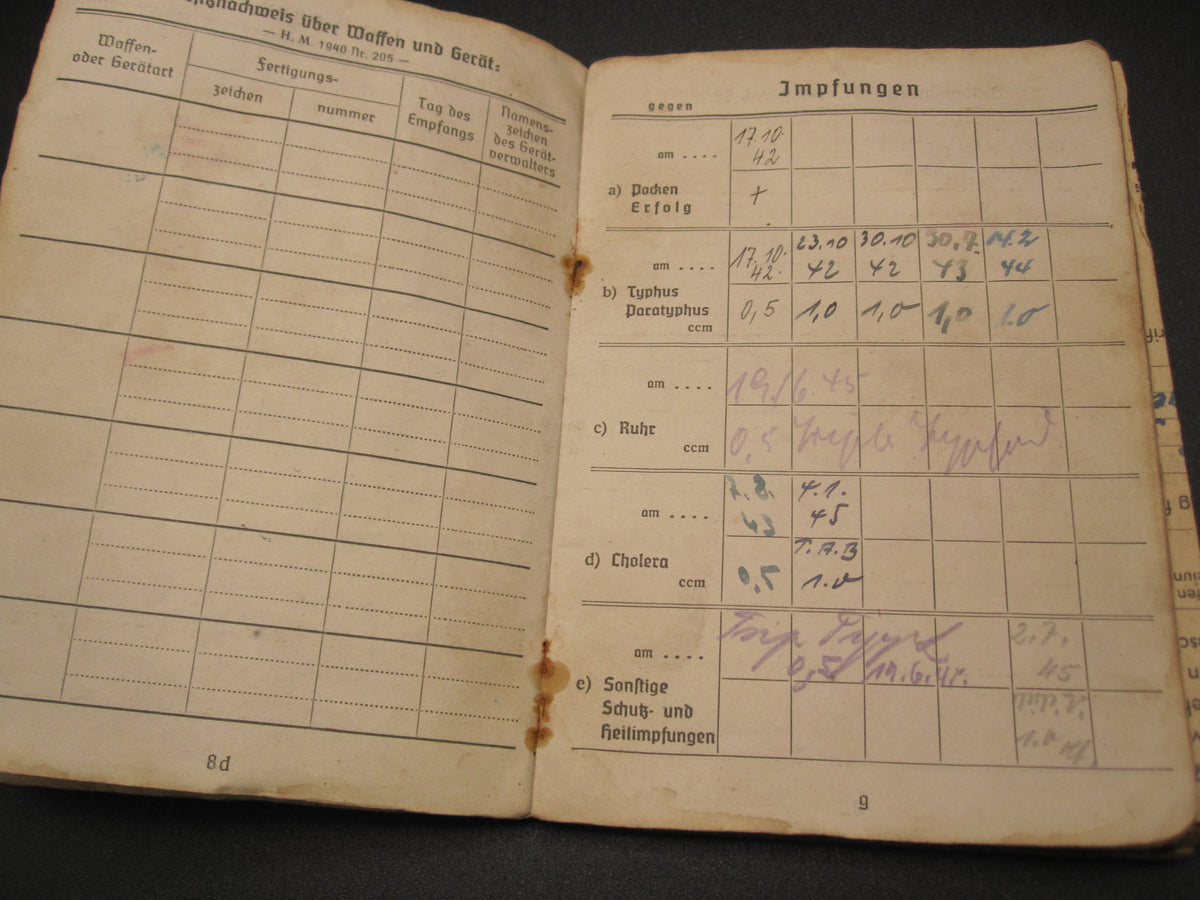 über Waffen und Gerät:
— H. M. 1940 Nr. 205 —
Waffen-
oder Gerätart
Fertigungs-
zeichen
nummer
Tag des
Empfangs
Namens-
zeichen
des Gerät-
verwalters
8d
Impfungen
gegen
am ....
17.10.
42
a) Pocken
Erfolg
+
am ....
17.10. 23.10 30.10 30.7. 14.2
42. 42 42 43 44
b) Typhus
Paratyphus
ccm
0,5 1,0 1,0 1,0 1.0
am ....
19/6 45
c) Ruhr
ccm
0,5
am ....
7.8. 4.1.
43 45
T.A.B
d) Cholera
ccm
0,5 1.0
am ....
0,5 19.6.45.
2.7.
45
e) Sonstige
Schutz- und
Heilimpfungen
1.0
9